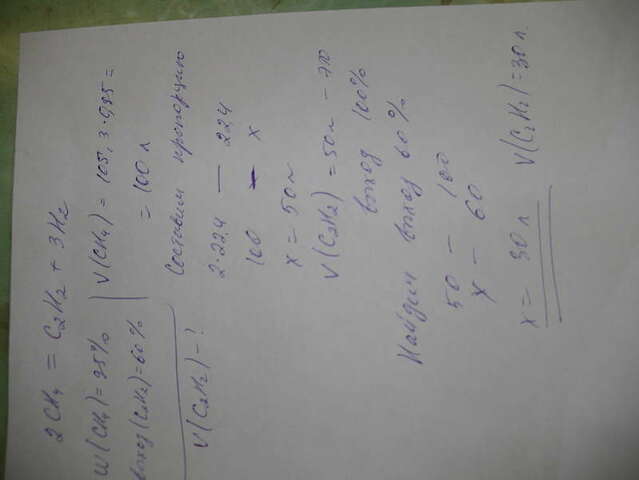 2CH₄ = C₂H₂ + 3H₂
W(CH₄) = 95%
выход(C₂H₂) = 60%
V(C₂H₂) - ?
V(CH₄) = 105,3 · 0,95 =
= 100 л
Составим пропорцию
2·22.4 — 22.4
100 — x
x = 50 л
V(C₂H₂) = 50 л - это
выход 100%
Найдем выход 60%
50 — 100
x — 60
x = 30 л V(C₂H₂) = 30 л.